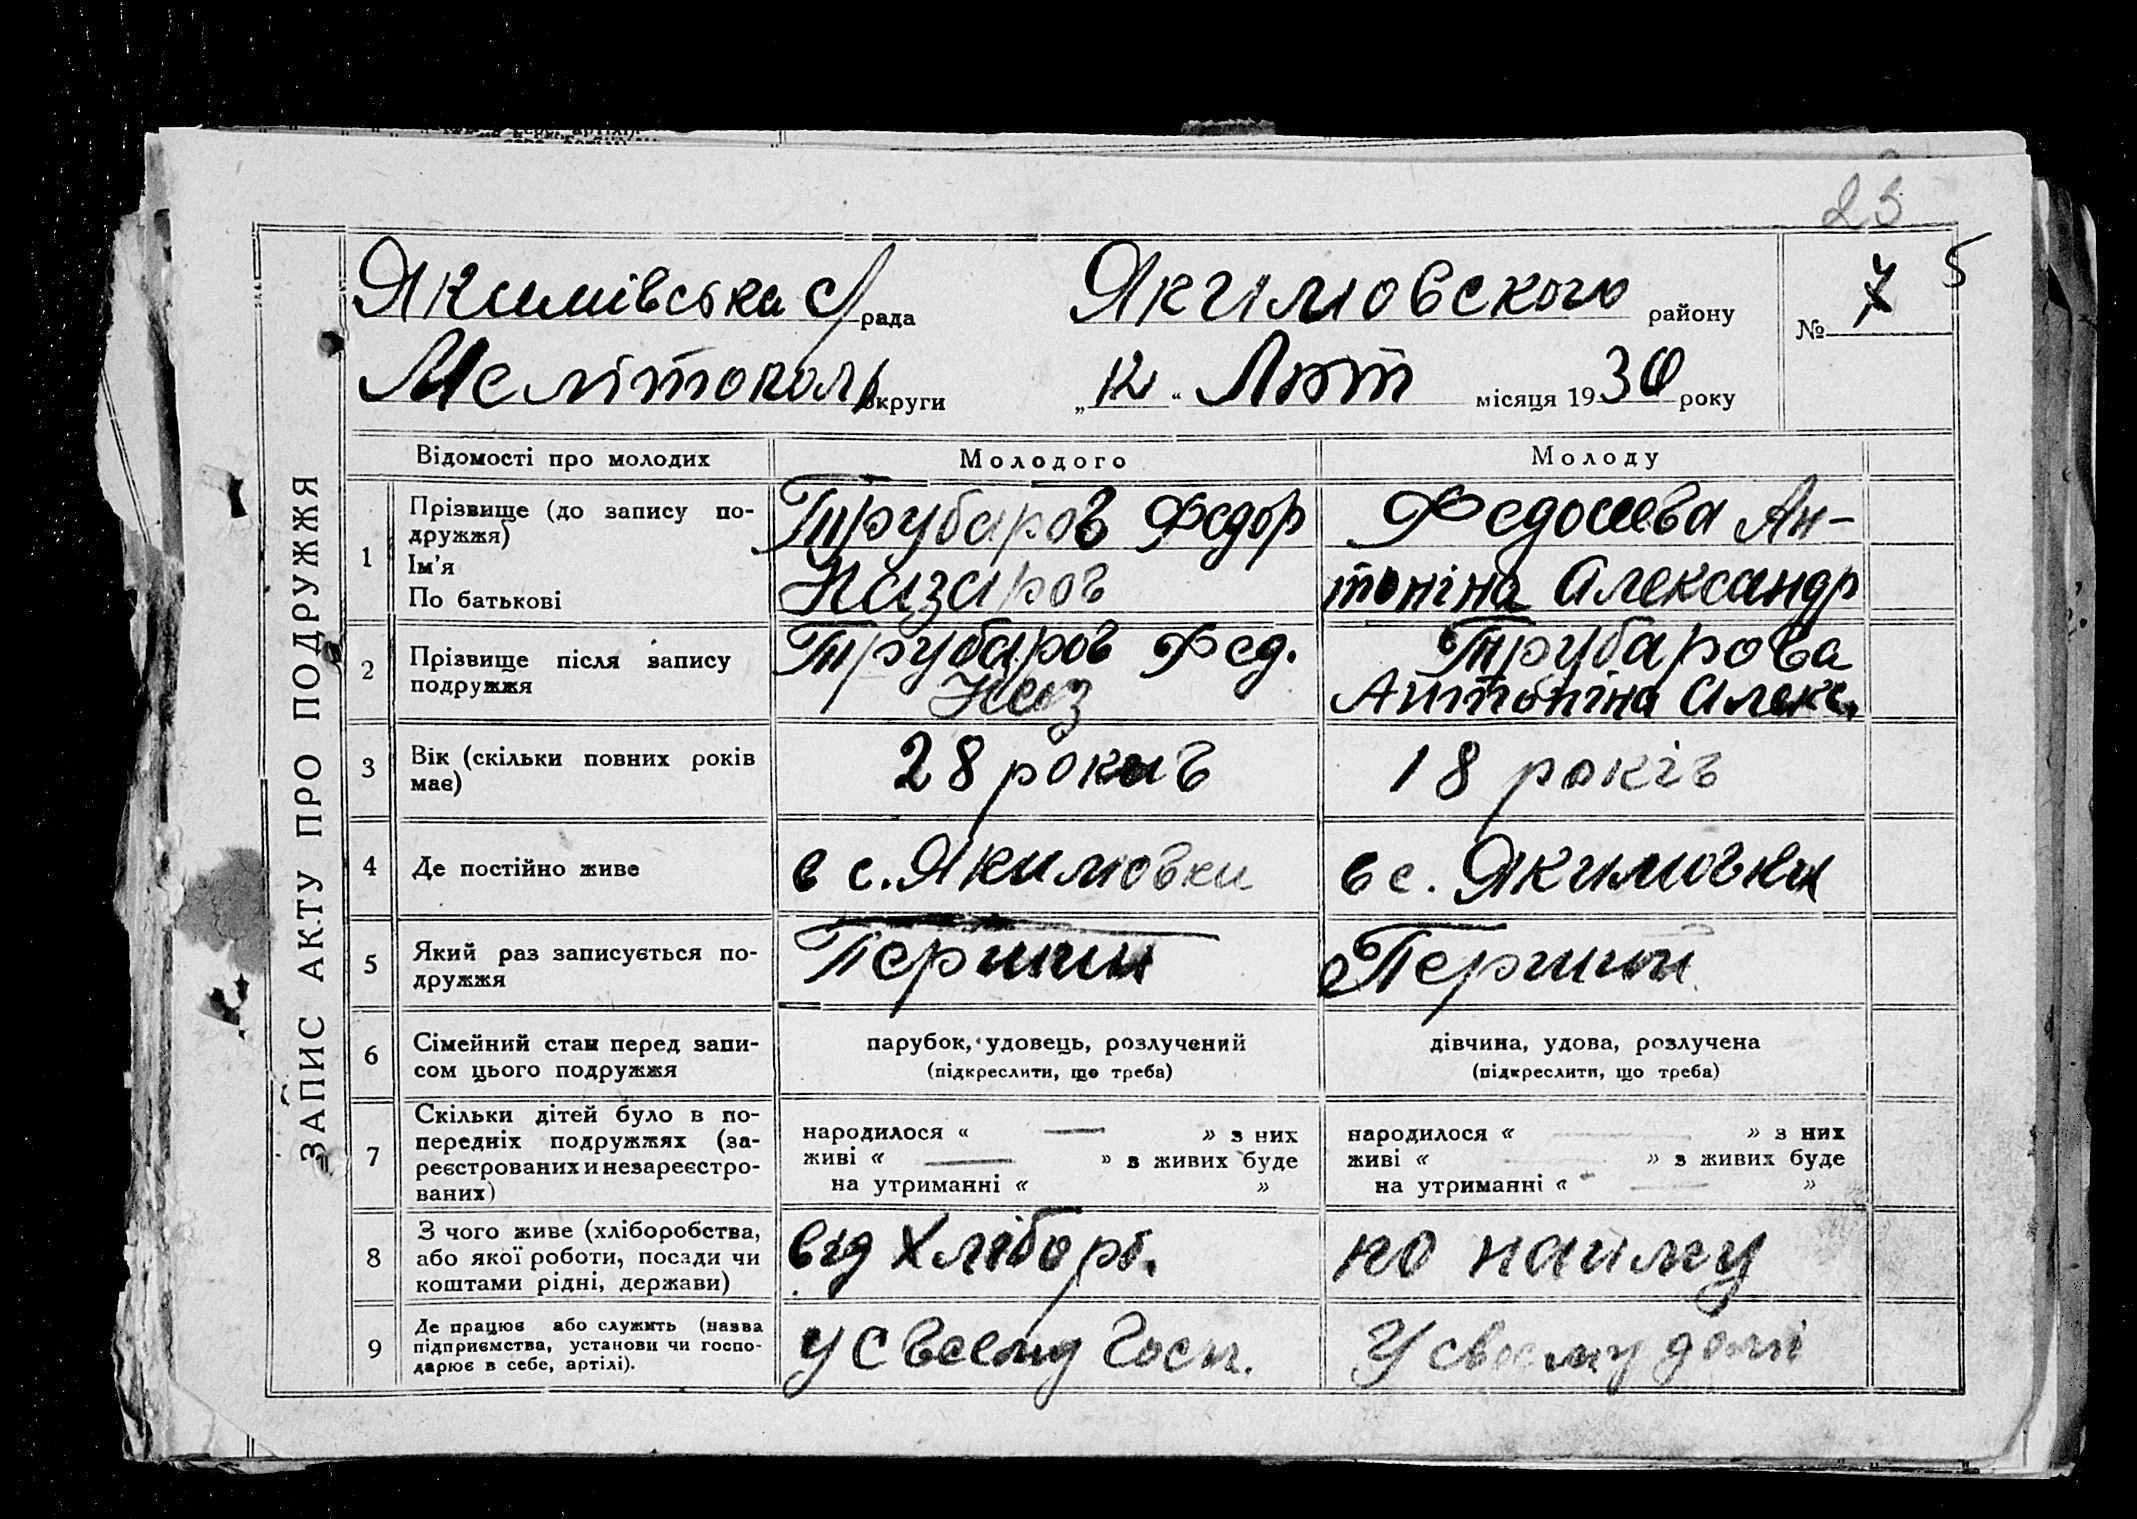 23
5
Якимівська с/рада
Якимовского району
№ 7
Мелітополь округи
„12“ Лют місяця 1930 року
ЗАПИС АКТУ ПРО ПОДРУЖЖЯ
Відомості про молодих
Молодого
Молоду
1
Прізвище (до запису по-
дружжя)
Ім'я
По батькові
Трубаров Федор
Назаров
Федосеева Ан-
тоніна Александр
2
Прізвище після запису
подружжя
Трубаров Фед.
Наз
Трубарова
Антоніна Алекс.
3
Вік (скільки повних років
має)
28 рокив
18 років
4
Де постійно живе
в с. Якимовки
в с. Якимовки
5
Який раз записується по-
дружжя
Перший
Перший
6
Сімейний стан перед запи-
сом цього подружжя
парубок, удовець, розлучений
(підкреслити, що треба)
дівчина, удова, розлучена
(підкреслити, що треба)
7
Скільки дітей було в по-
передніх подружжях (за-
реєстрованих и незареєстро-
ваних)
народилося « — » з них
живі « — » з живих буде
на утриманні « »
народилося « — » з них
живі « — » з живих буде
на утриманні « — »
8
З чого живе (хліборобства,
або якої роботи, посади чи
коштами рідні, держави)
від хлібороб.
по найму
9
Де працює або служить (назва
підприємства, установи чи госпо-
дарює в себе, артілі).
у своему госп.
У своему домі